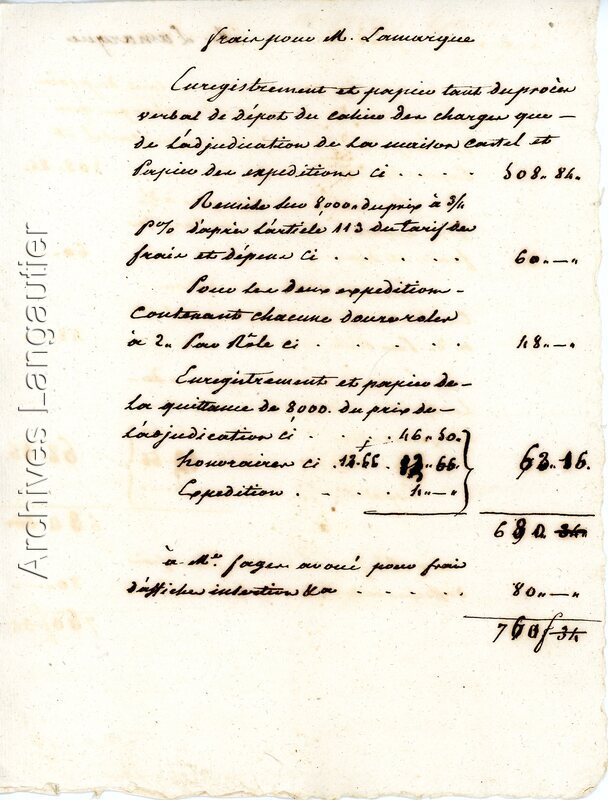 frais pour M. Lamarque
Enregistrement et papier tant du procès
verbal de dépot du cahier des charges que
de l'adjudication de la maison castel et
Papier des expeditions ci . . . . . 508.. 84..
Remise sur 8000.. du prix à 3/4
p% d'après l'article 113 du tarif des
frais et dépens ci . . . . . 60..—..
Pour les deux expeditions
contenant chacune douze roles
à 2.. Par Rôle ci . . . . . 48..—..
Enregistrement et papier de
la quittance de 8000. du prix de
l'adjudication ci . . . 46..50..
honoraires ci . 12.66 . 12..66. 63..16.
Expedition . . . . 4..—..
680 34
à Me. fages avoué pour frais
d'affiches insertion &a . . . . . 80..—..
760f 34
Archives Langautier